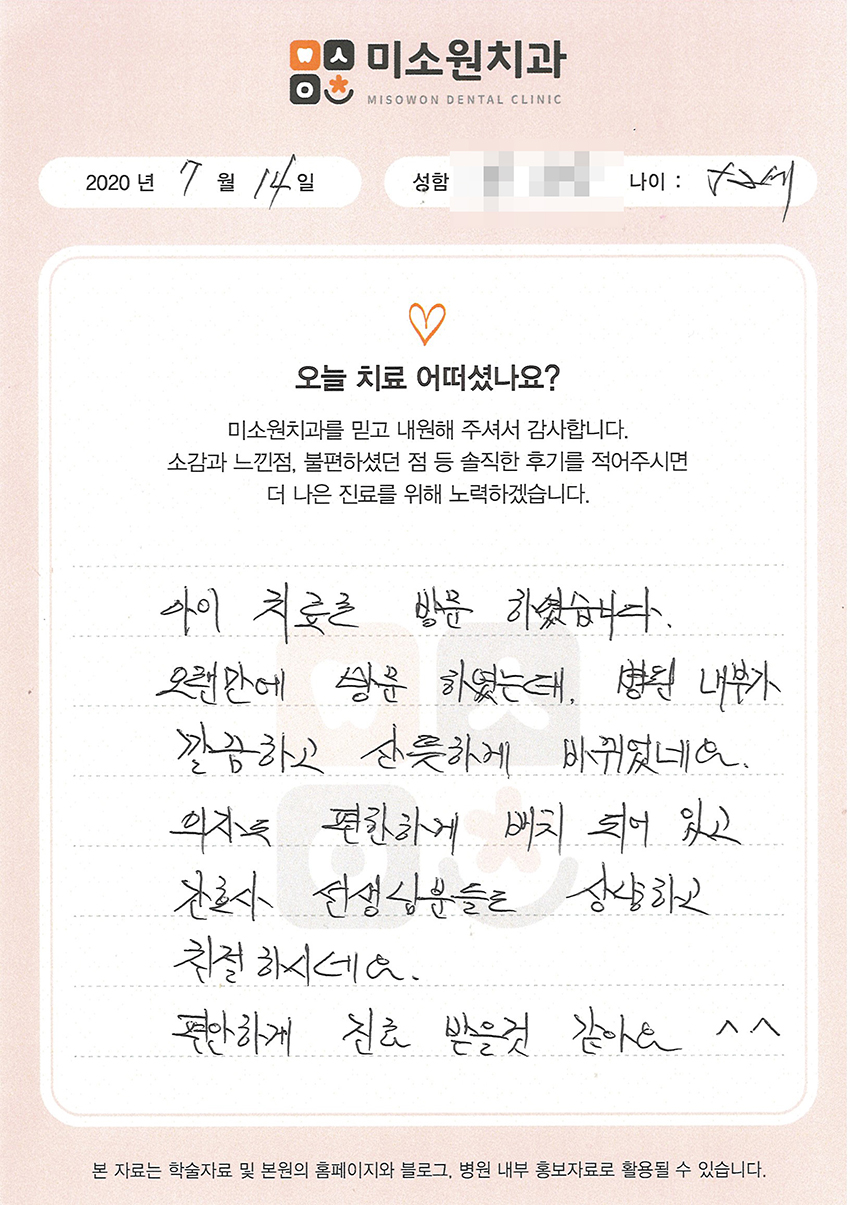 미소원치과
MISOWON DENTAL CLINIC
2020 년 7 월 14 일 성함 나이 :
오늘 치료 어떠셨나요?
미소원치과를 믿고 내원해 주셔서 감사합니다.
소감과 느낀점, 불편하셨던 점 등 솔직한 후기를 적어주시면
더 나은 진료를 위해 노력하겠습니다.
아이 치료로 방문 하였습니다.
오랜만에 방문 하였는데, 병원 내부가
깔끔하고 산뜻하게 바뀌었네요.
의자도 편안하게 배치 되어 있고
간호사 선생님분들도 상냥하고
친절하시네요.
편안하게 진료 받을것 같아요 ^^
본 자료는 학술자료 및 본원의 홈페이지와 블로그, 병원 내부 홍보자료로 활용될 수 있습니다.